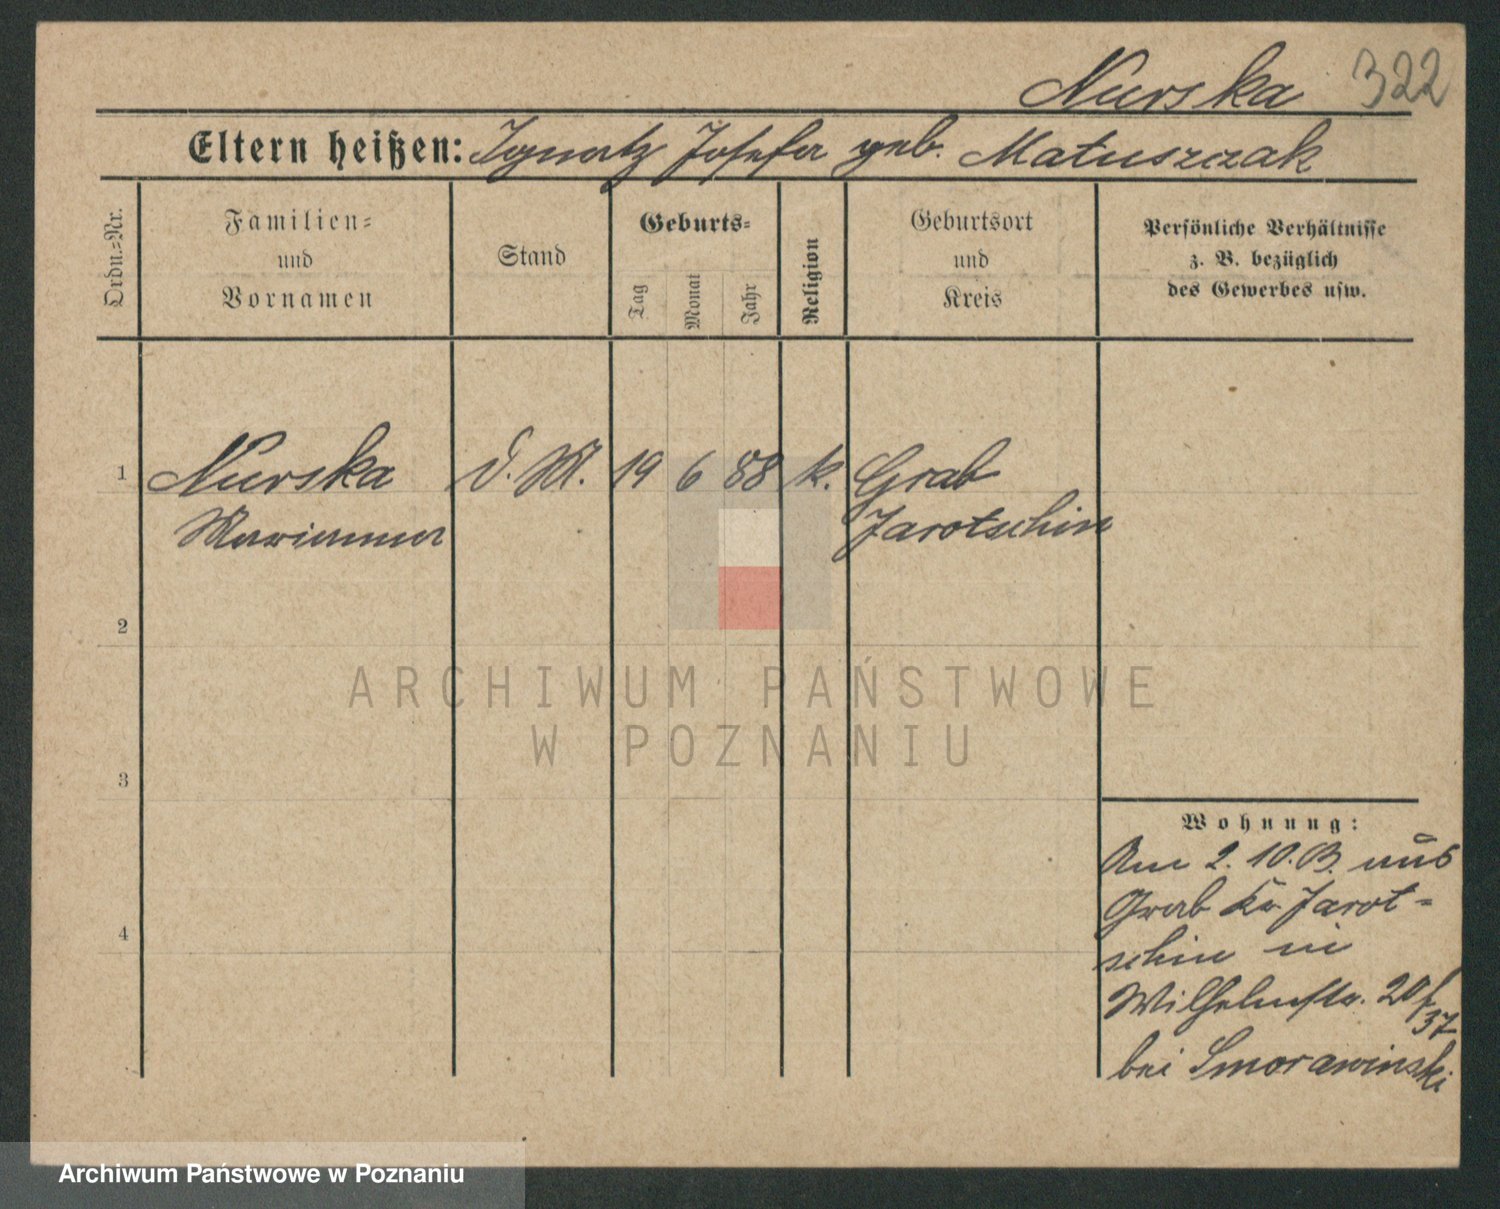 Nurska 322
Eltern heißen: Ignatz Josefa geb. Matuszczak
Ordn.=Nr.
Familien=
und
Vornamen
Stand
Geburts=
Tag
Monat
Jahr
Religion
Geburtsort
und
Kreis
Persönliche Verhältnisse
z. B. bezüglich
des Gewerbes usw.
1 Nurska D. M. 19 6 88 k. Grab
Marianna Jarotschin
2
3
4
ARCHIWUM PAŃSTWOWE
W POZNANIU
Wohnung:
Am 2. 10. 13. aus
Grab Kr. Jarot-
schin in
Wilhelmstr. 20
37
bei Smorawinski
Archiwum Państwowe w Poznaniu